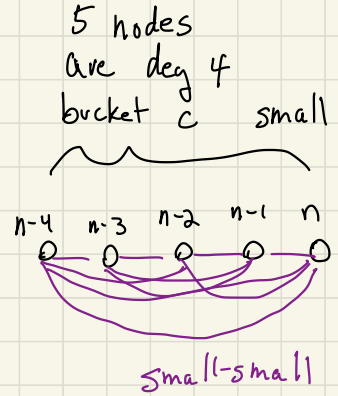 5 nodes
are deg 4
bucket c small
n-4 n-3 n-2 n-1 n
small-small